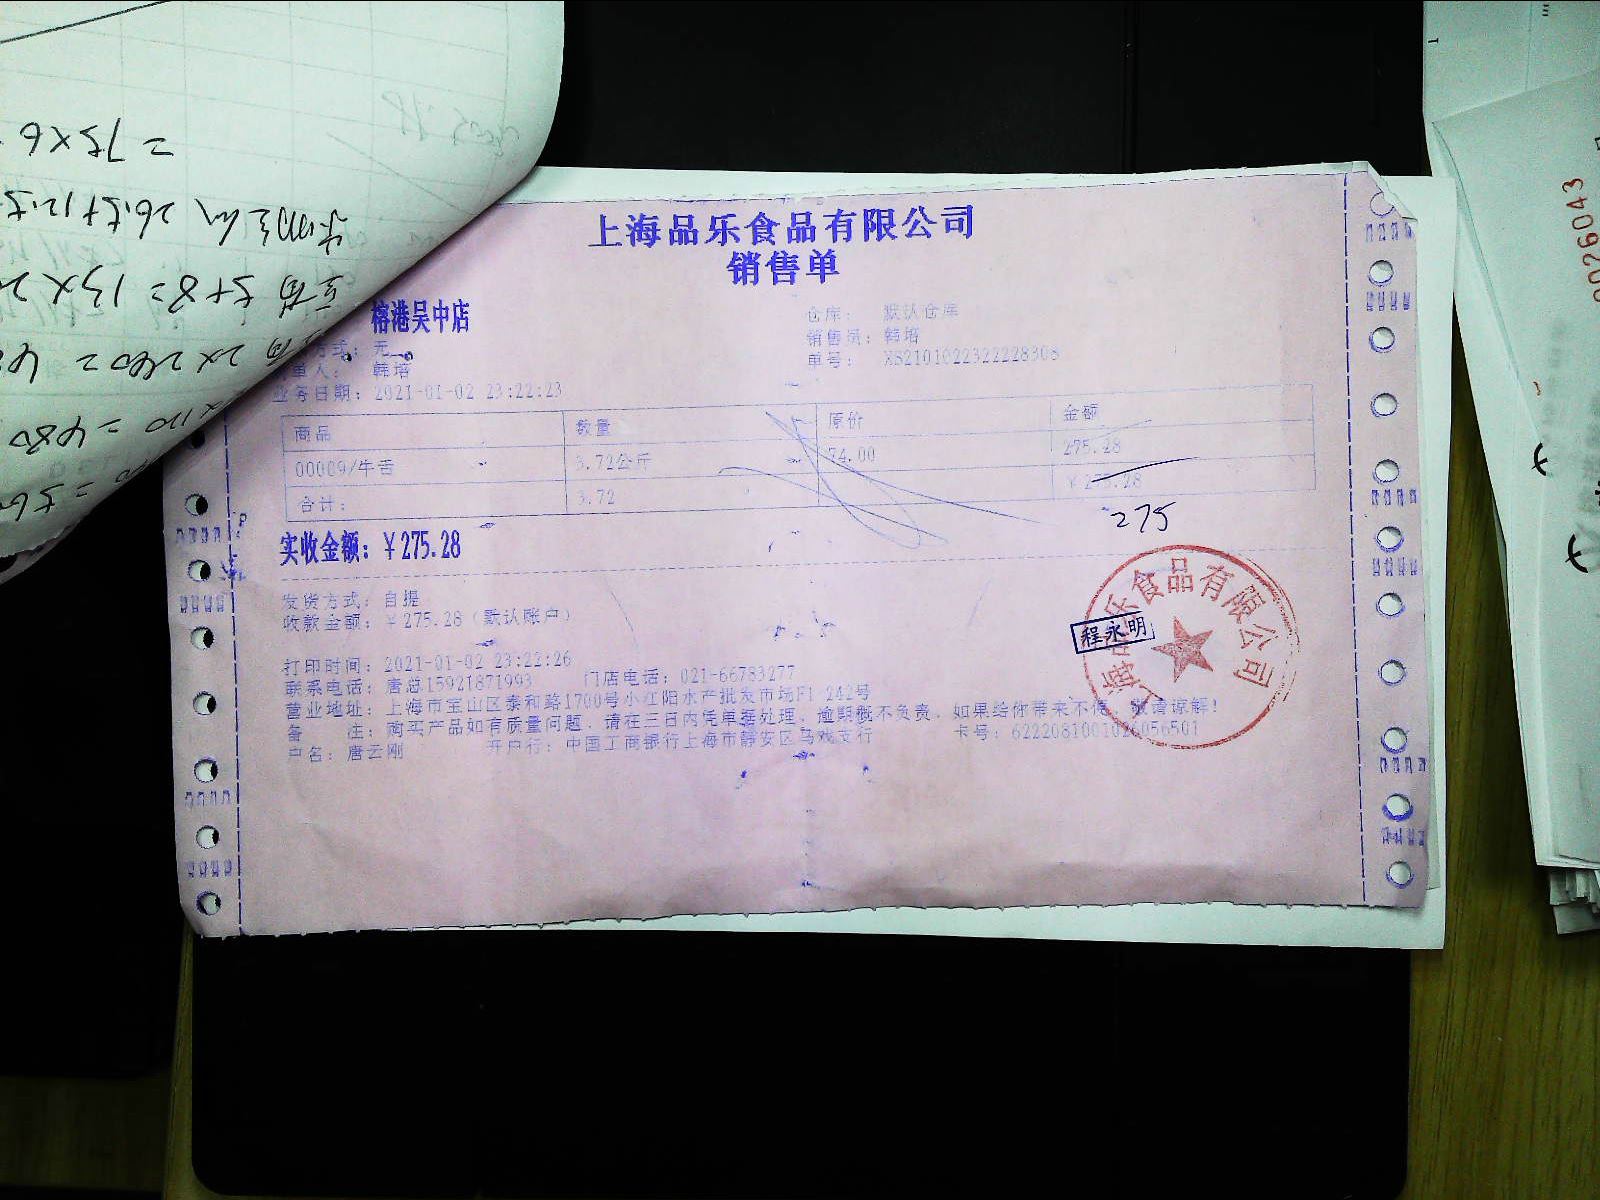 上海品乐食品有限公司
销售单
榕港吴中店
仓库： 默认仓库
方式：无
销售员：韩培
单人： 韩培
单号： XS2101022322228308
业务日期：2021-01-02 23:22:23
商品 数量 原价 金额
00009/牛舌 3.72公斤 74.00 275.28
合计： 3.72 ￥275.28
275
实收金额：￥275.28
发货方式：自提
收款金额：￥275.28（默认账户）
打印时间：2021-01-02 23:22:26 门店电话：021-66783277
联系电话：唐总15921871993
营业地址：上海市宝山区泰和路1700号小红阳水产批发市场F1 242号
备 注：购买产品如有质量问题，请在三日内凭单据处理，逾期概不负责，如果给你带来不便，敬请谅解！
户名：唐云刚 开户行：中国工商银行上海市静安区马戏支行 卡号：6222081001026056501
上海品乐食品有限公司
程永明
=75×6
26.5+12.5
5+8=13×2
2×240=4
×110=480
=56
0026043